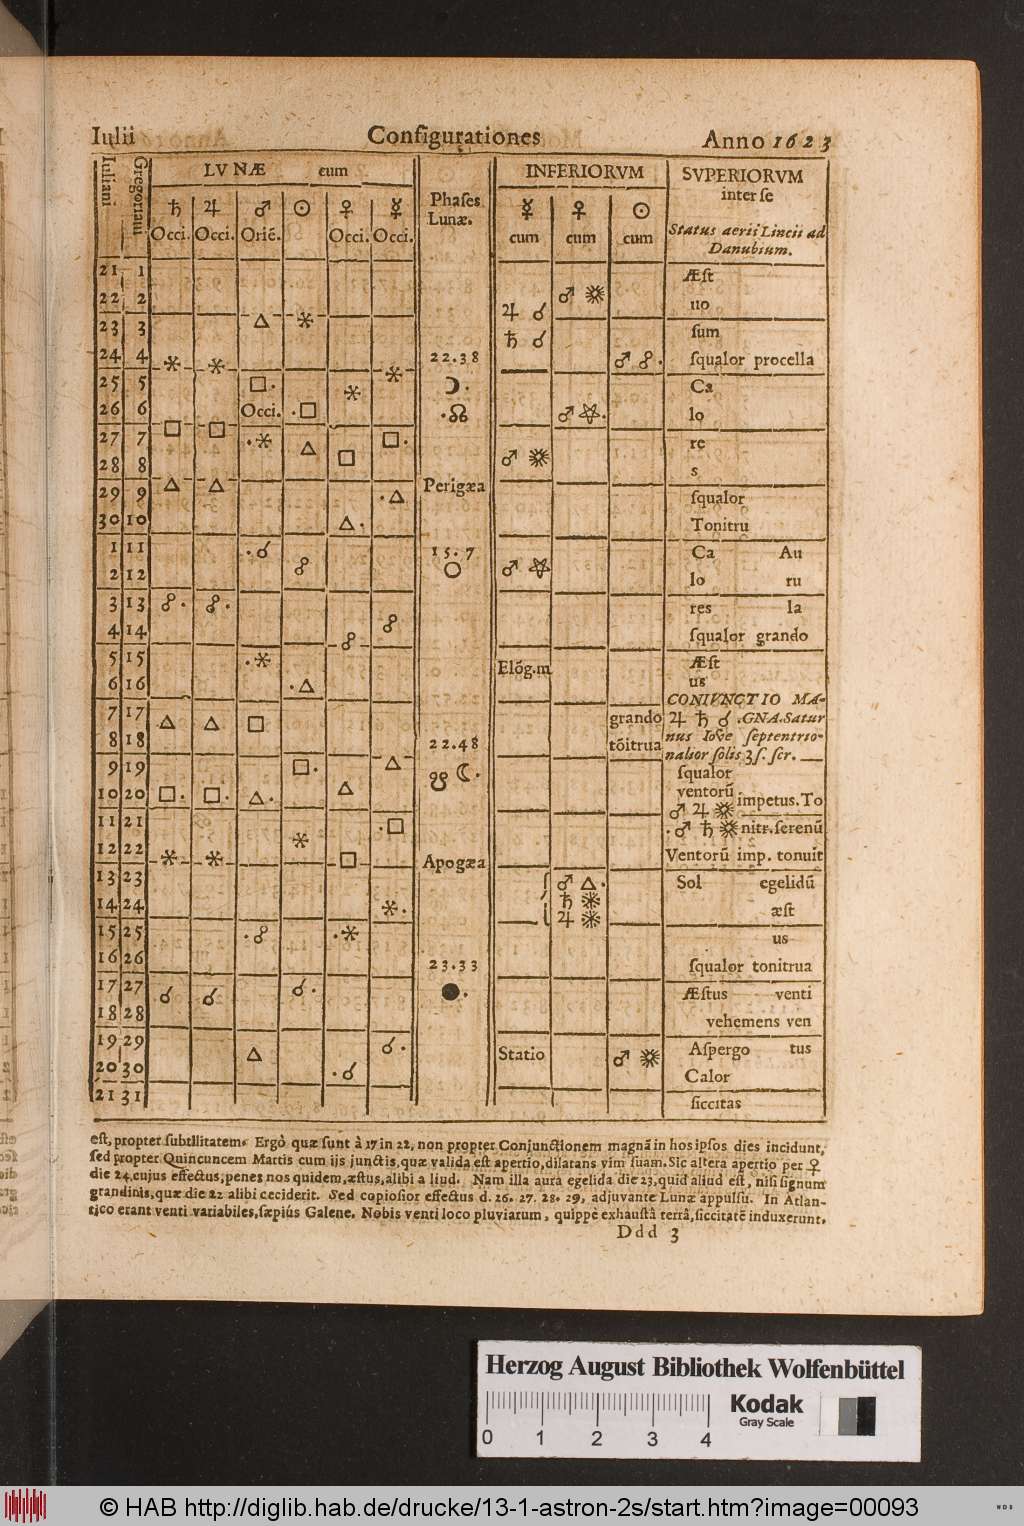 Iulii Configurationes Anno 1623
Iuliani
Gregoriani
LVNÆ cum
♄ ♃ ♂ ☉ ♀ ☿
Occi. Occi. Oriē. Occi. Occi.
Phases
Lunæ.
INFERIORVM
☿ ♀ ☉
cum cum cum
SVPERIORVM
inter se
Status aerii Lincii ad
Danubium.
21 1 Æſt
22 2 ♃ ☌ ♂ uo
23 3 △ ⚹ ♄ ☌ ſum
24 4 ⚹ ⚹ ⚹ 22.38 ♂ ☍. ſqualor procella
25 5 □. ⚹ ☽. Ca
26 6 Occi. .□ .☊ ♂ . lo
27 7 □ □ .⚹ △ □. re
28 8 □ ♂ s
29 9 △ △ .△ Perigæa ſqualor
30 10 △. Tonitru
1 11 .☌ 15.7 Ca Au
2 12 ☍ ○ ♂ lo ru
3 13 ☍. ☍. res la
4 14 ☍ ☍ ſqualor grando
5 15 .⚹ Elōg.m Æſt
6 16 .△ us
7 17 △ △ □ grando
8 18 22.48 tōitrua
CONIVNCTIO MA-
♃ ♄ ☌ .GNA.Satur
nus Iove ſeptentrio-
nalior ſolis 3ſ. ſcr.
9 19 □. △ ☋ ☾. ſqualor
ventorū
10 20 □. □. △. △ impetus.To
♂ ♃
11 21 .□ .♂ ♄ nitr.ſerenū
12 22 ⚹ ⚹ ⚹ □ Apogæa Ventorū imp. tonuit
13 23 ♂ △. Sol egelidū
14 24 ⚹. ♄ ♃ æſt
15 25 .☍ .⚹ us
16 26 23.33 ſqualor tonitrua
17 27 ☌ ☌ ☌. ●. Æſtus venti
18 28 vehemens ven
19 29 △ ☌. Statio ♂ Aſpergo tus
20 30 .☌ Calor
21 31 ſiccitas
eſt, propter ſubtilitatem. Ergò quæ ſunt à 17 in 22, non propter Conjunctionem magnā in hos ipſos dies incidunt,
ſed propter Quincuncem Martis cum ijs junctis, quæ valida eſt apertio, dilatans vim ſuam. Sic altera apertio per ♀
die 24, cujus effectus, penes nos quidem, æſtus, alibi a liud. Nam illa aura egelida die 23, quid aliud eſt, niſi ſignum
grandinis, quæ die 22 alibi ceciderit. Sed copioſior effectus d. 26. 27. 28. 29, adjuvante Lunæ appulſu. In Atlan-
tico erant venti variabiles, ſæpiús Galene. Nobis venti loco pluviarum, quippè exhauſtâ terrâ, ſiccitatē induxerunt.
Ddd 3
Herzog August Bibliothek Wolfenbüttel
0 1 2 3 4
Kodak
Gray Scale
© HAB http://diglib.hab.de/drucke/13-1-astron-2s/start.htm?image=00093